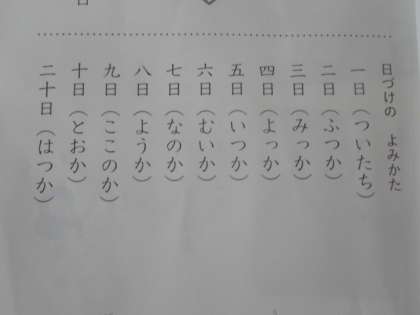 日づけの　よみかた
一日（ついたち）
二日（ふつか）
三日（みっか）
四日（よっか）
五日（いつか）
六日（むいか）
七日（なのか）
八日（ようか）
九日（ここのか）
十日（とおか）
二十日（はつか）